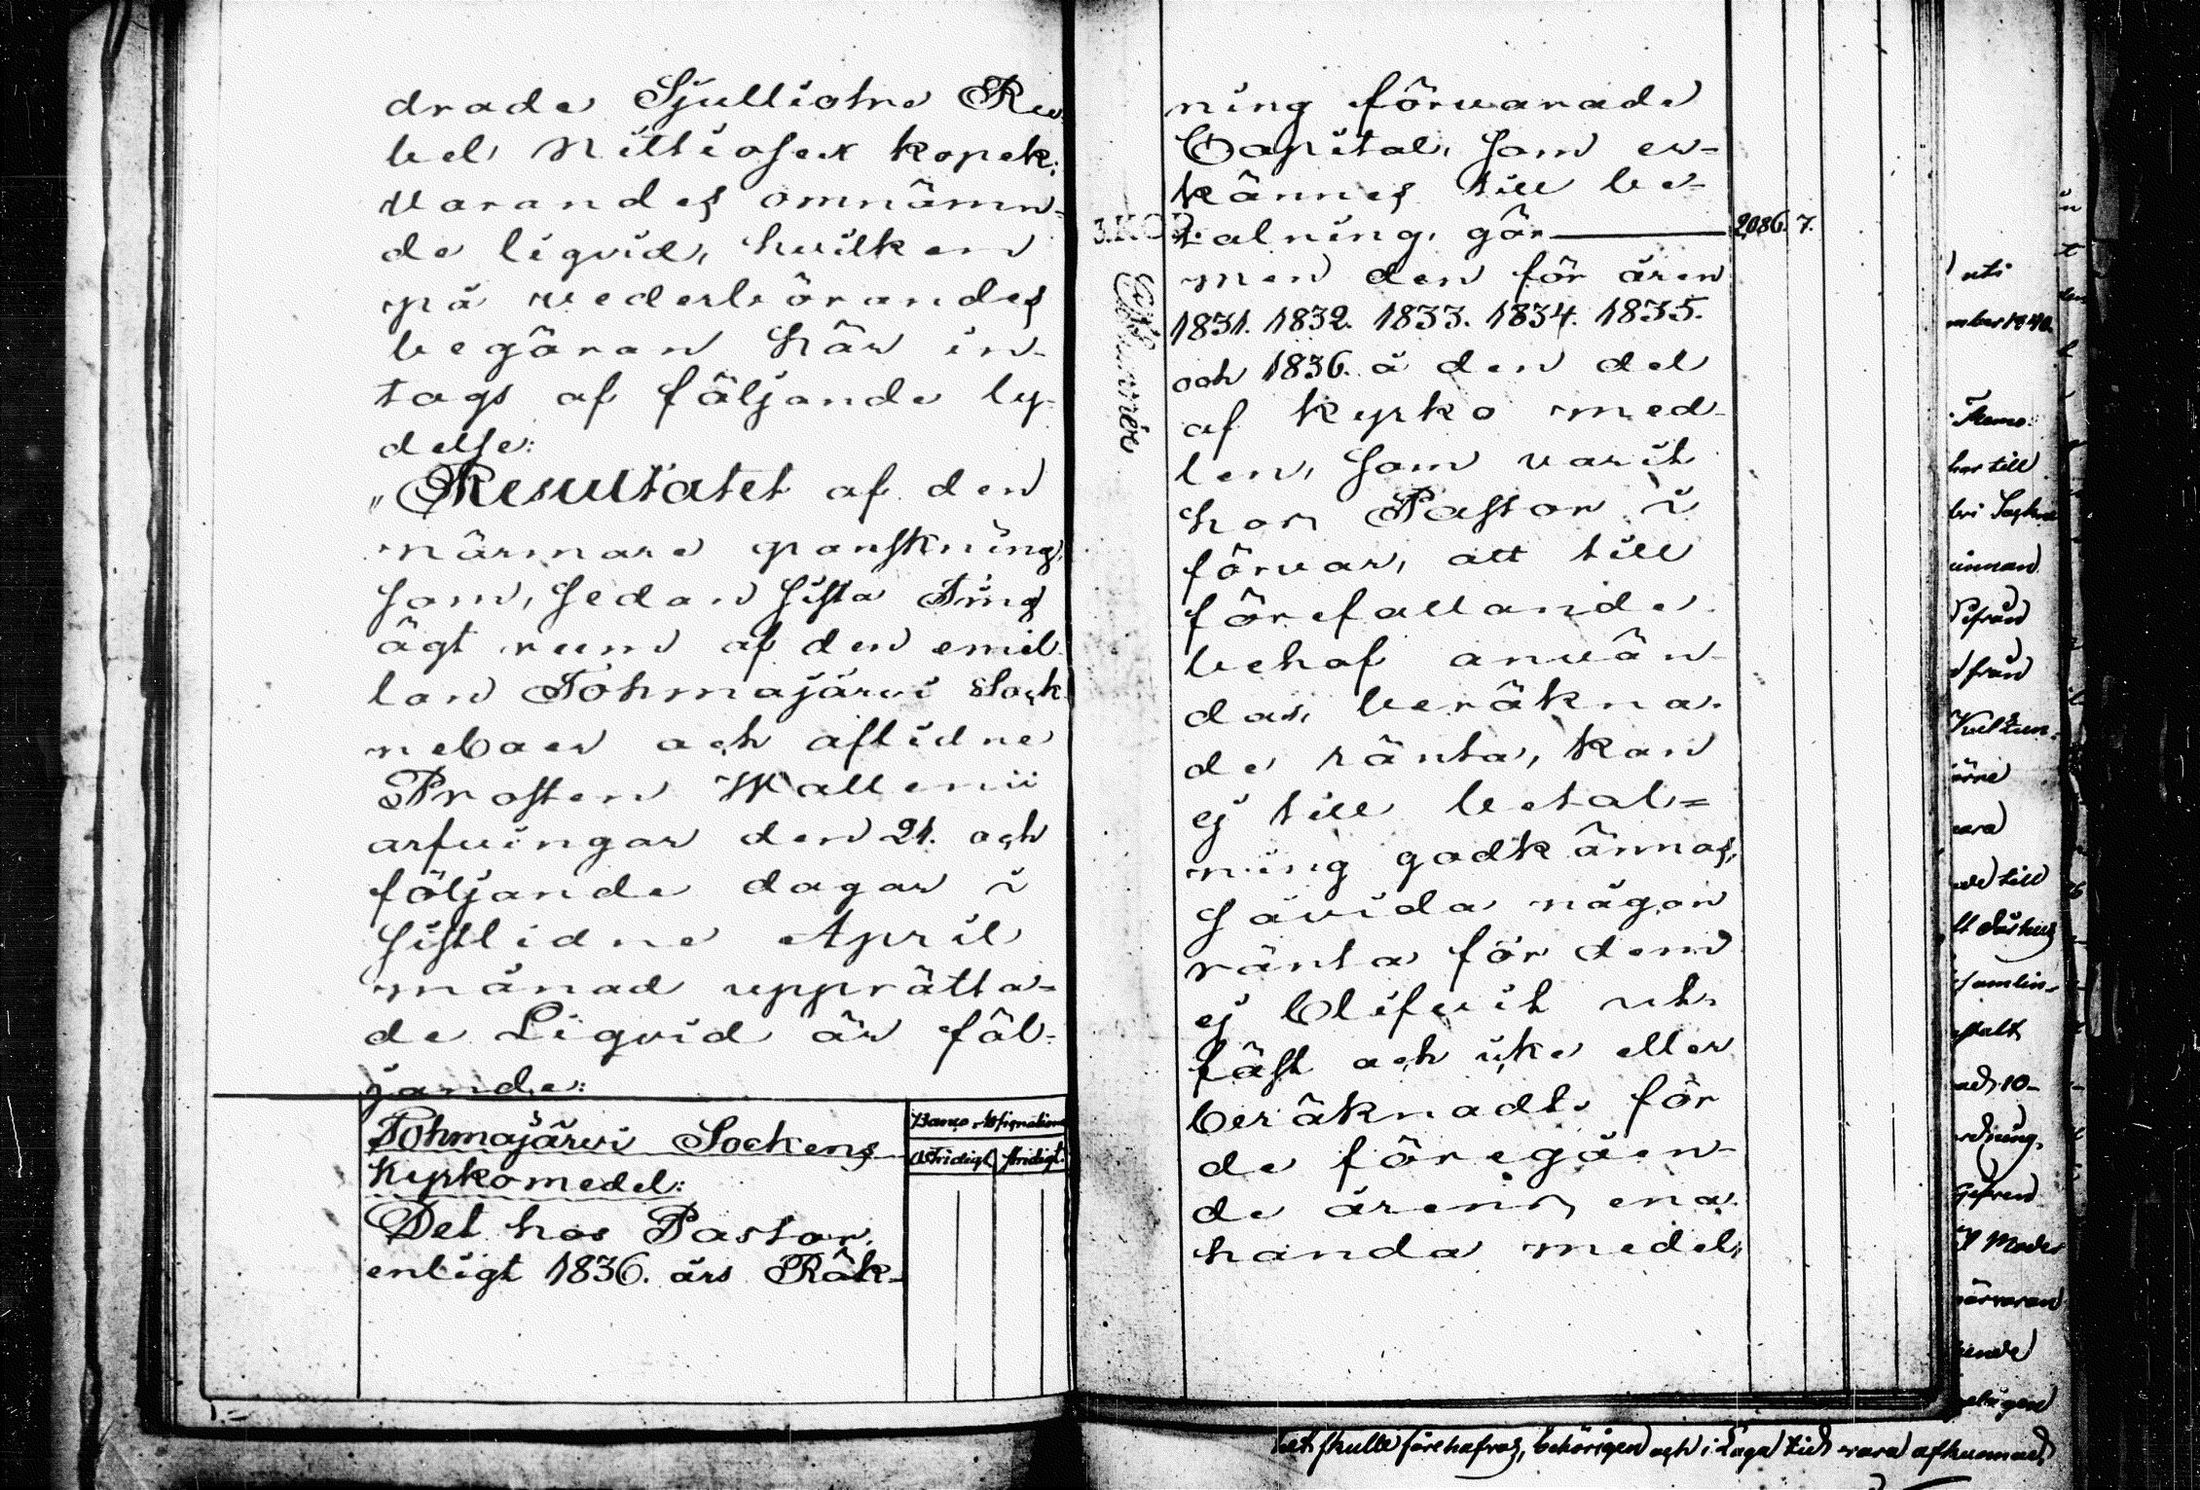 drade Sjuttiotre Ru-
bel Nittiosex kopek;
varandes omnämn-
de liqvid, hvilken
på vederbörandes
begäran här in-
tags af följande ly-
delse:
"Resultatet af den
närmare granskning,
som, sedan sista Ting
ägt rum af den emel-
lan Tohmajärvi Sock-
neboer och aflidne
Prosten Wallenii
arfvingar den 21. och
följande dagar i
sistlidne April
månad upprätta-
de Liqvid är föl-
jande:
Tohmajärvi Sockens
Kyrkomedel:
Banco Assignationer
Ostridigt stridigt.
Det hos Pastor,
enligt 1836. års Räk-
ning förvarade
Capital, som er-
kännes till be-
talning, gör 2,086. 7.
men den för åren
1831. 1832. 1833. 1834. 1835.
och 1836. å den del
af kyrko med-
len, som varit
hos Pastor i
förvar, att till
förefallande
behof använ-
das, beräkna-
de ränta, kan
ej till betal=
ning godkännas,
såvida någon
ränta för dem
ej blifvit ut-
fäst och icke eller
beräknadt för
de föregåen-
de årens ena-
handa medel;
3. KOP.
uti
mber 1840.
har till
innan
från
ara
till
samlin-
ad 10-
närvaron
skulle förehafvas, behörigen och i Laga tid vara afkunnadt